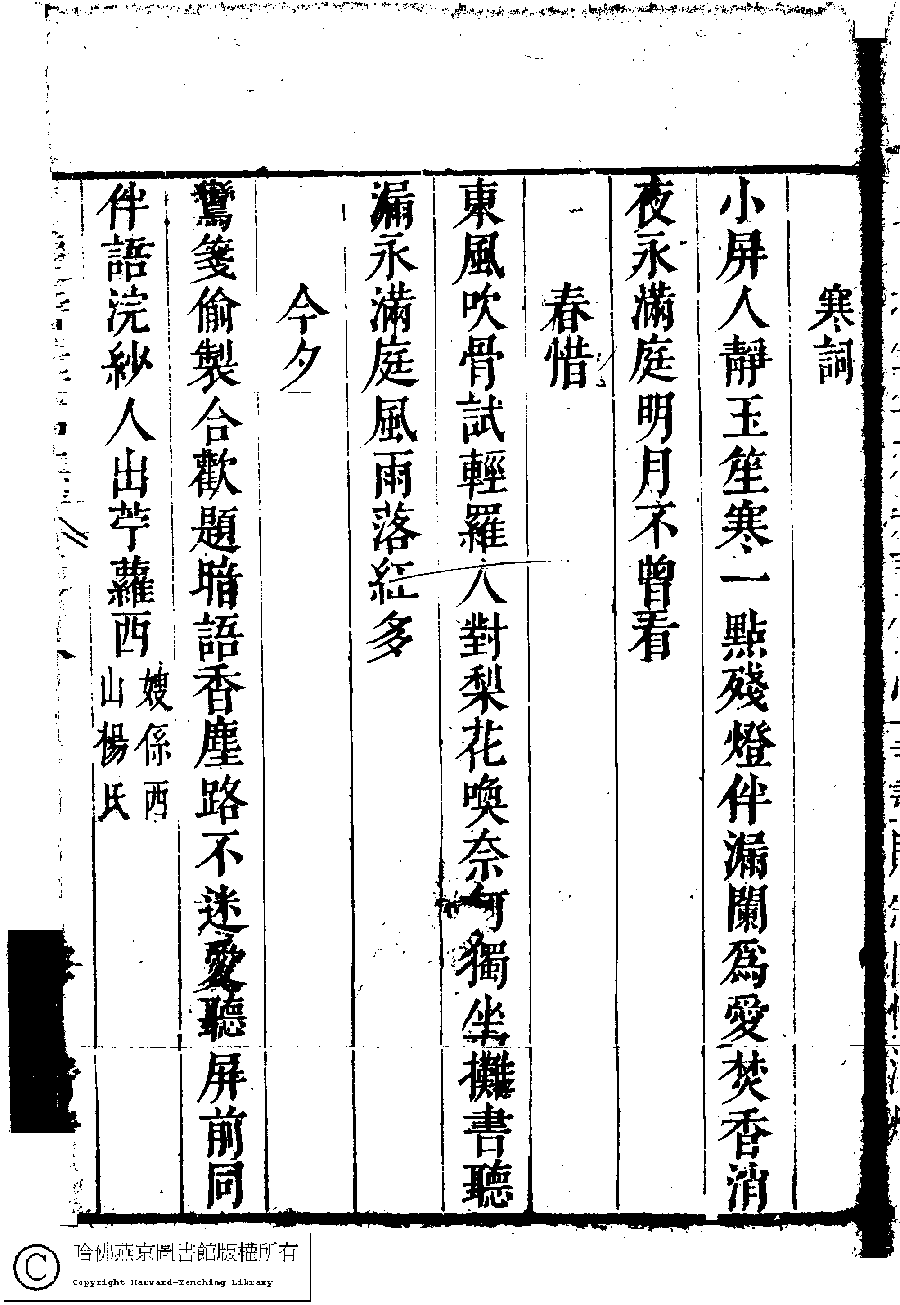 寒詞
小屏人靜玉笙寒一點殘燈伴漏闌爲愛焚香消
夜永滿庭明月不曾看
春惜
東風吹骨試輕羅人對梨花喚奈何獨坐攤書聽
漏永滿庭風雨落紅多
今夕
鸞箋偷製合歡題暗語香塵路不迷愛聽屏前同
伴語浣紗人出苧蘿西
嫂係西
山楊氏
哈佛燕京圖書館版權所有
Copyright Harvard-Yenching Library